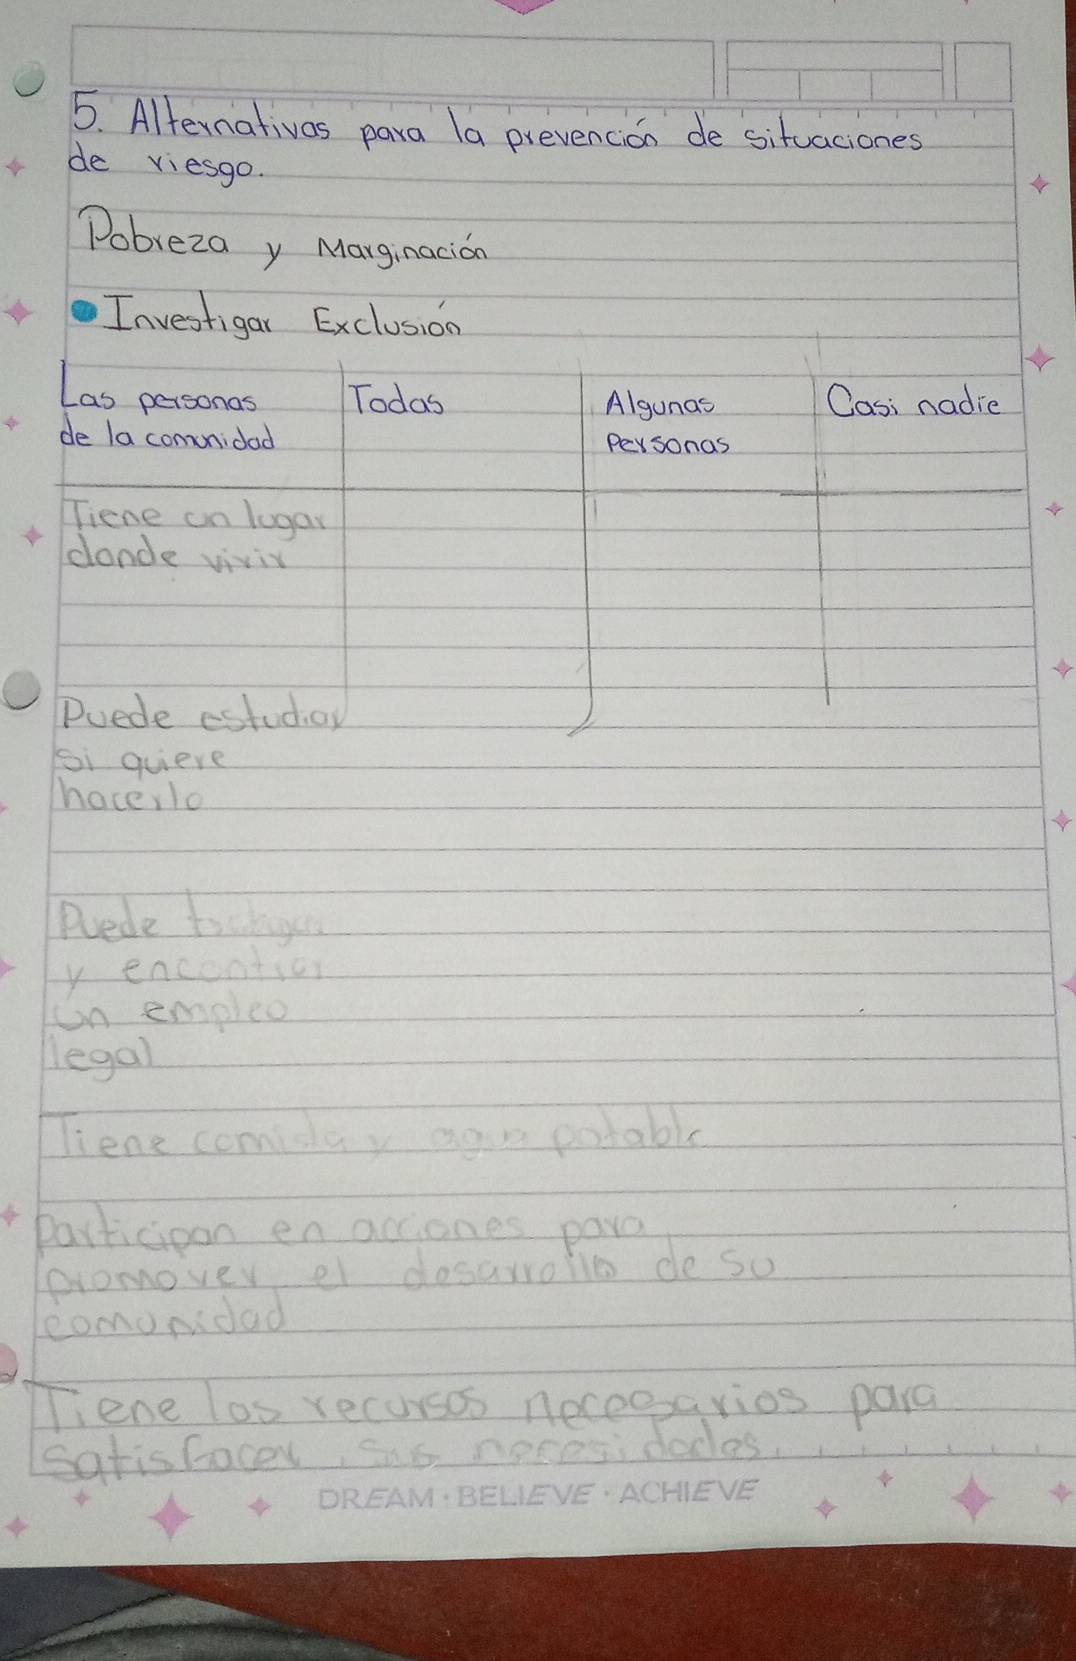 5. Alternativas para la prevención de situaciones
de riesgo.
Pobreza y Marginación
Investigar Exclusión
Las personas Todas Algunas Casi nadie
de la comunidad Personas
Tiene un lugar
donde vivir
Puede estudiar
si quiere
hacerlo
Puede
y encontrar
un empleo
legal
Tiene comida y agua potable
Participan en acciones para
promover el desarrollo de su
comunidad
Tiene los recursos necesarios para
satisfacer sus necesidades.
DREAM · BELIEVE · ACHIEVE